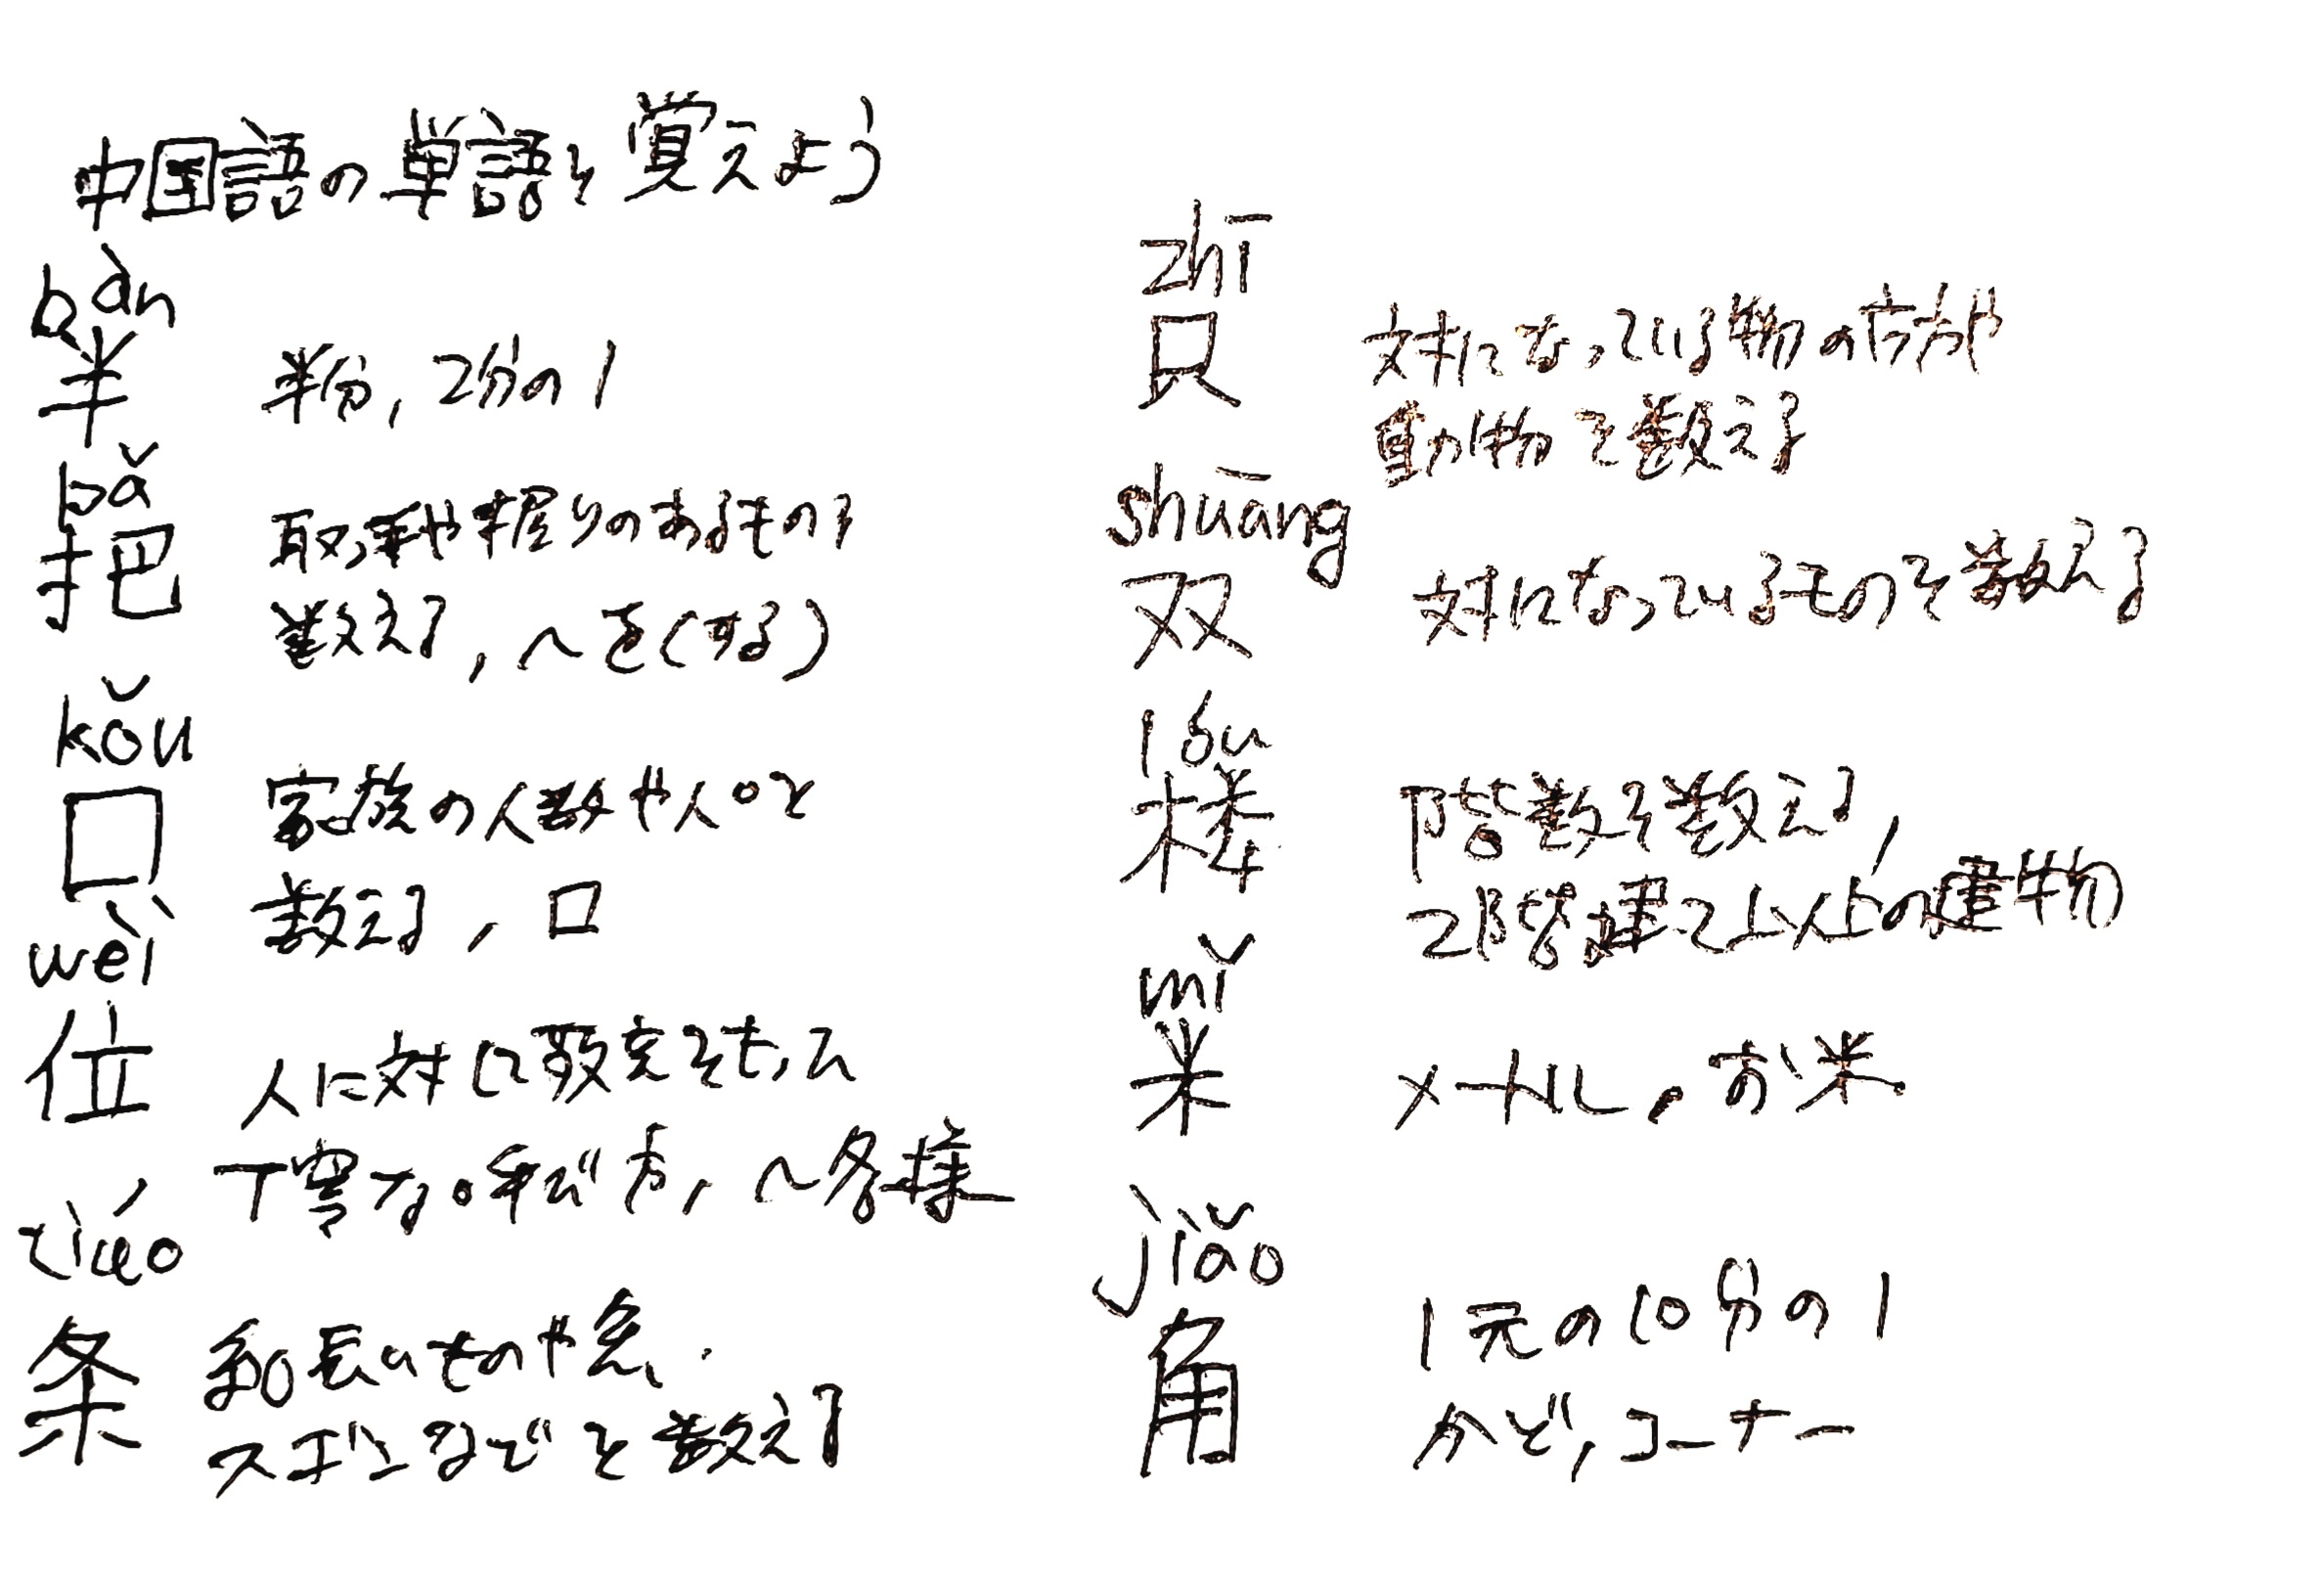 中国語の単語を覚えよう
bàn
半 半分，2分の1
bǎ
把 取っ手や握りのあるものを
数える，〜を(する)
kǒu
口 家族の人数や人口を
数える，口
wèi
位 人に対して敬意をもって
丁寧な呼び方，〜名様
tiáo
条 細長いものや魚、
ズボンなどを数える
zhī
只 対になっている物の片方や
動物を数える
shuāng
双 対になっているものを数える
lóu
楼 階数を数える，
2階建て以上の建物
mǐ
米 メートル，お米
jiǎo
角 1元の10分の1
かど，コーナー